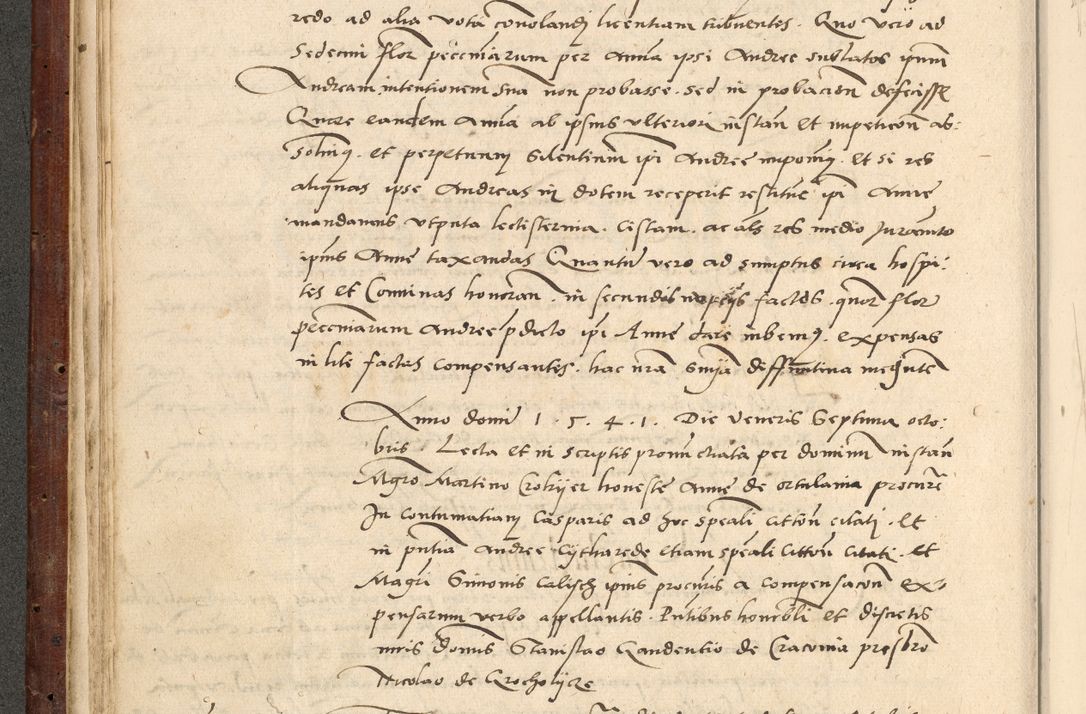 redo ad alia vota convolandi licentiam tribuentes. Quo vero ad
sedecim flor pecuniarum per Annã ipsi Andree sublatos ipsum
Andream intentionem suã non probasse. sed in probacioñ defecisse
Quare eandem Annã ab ipsius ulteriori instañ et impeticoñ ab:
solvim9. et perpetuum silentium ipi Andree imponim9. et si res
aliquas ipse Andreas in dotem receperit restitue ipi Anne
mandamus utputa lectisternia. Cistam. ac als res medio Juramto
ipius Anne taxandas Quantũ vero ad sumptus circa hospi:
tes et Convivas honorañ. in secundis nupcys factos. quatuor flor
pecuniarum Andree pdicto ipi Anne dare iubem9. expensas
in lite factas compensantes. hac nrã snĩa diffinitiva mediante
Anno domĩ 1.5.4.1. Die Veneris Septima octo:
bris. Lecta et in scriptis pronũctiata per dominum in stañ
Mgro Martino Crokyer honeste Anne de ortulania procure
In contumatiam Casparis ad hoc speali cittoñ citati. et
in pntia Andree Cytharede etiam speali cittoñ citati. et
Magri Simonis Calisch ipius procuris a compensacoñ ex:
pensarum verbo appellantis. Pntibus honorbli et discretis
viris domis Stanislao Gaudentio de Cracovia presbro
Nicolao de Grocholycze